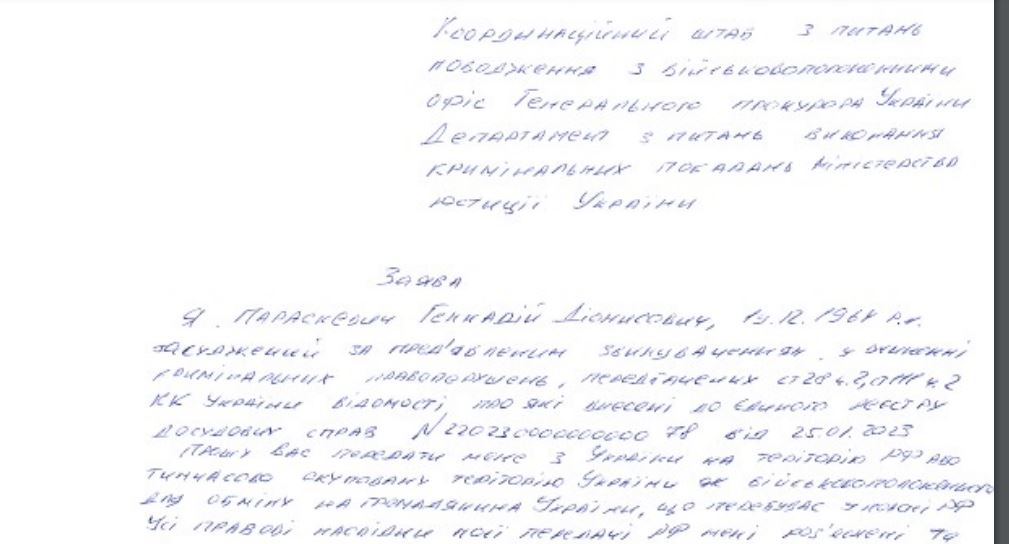 Координаційний штаб з питань
поводження з військовополоненними
офіс Генерального прокурора України
Департамент з питань виконання
кримінальних покарань Міністерства
юстиції України
Заява
Я. Параскевич Геннадій Діонисович, 1964 р.н.
засуджений за пред'явленим звинуваченням у вчиненні
кримінальних правопорушень, передбачених ст 28 ч.2, ч.2
КК України відомості про які внесені до Єдиного реєстру
досудових справ N22023000000000078 від 25.01.2023
Прошу Вас передати мене з України на територію РФ або
тимчасово окуповану територію України як військовополоненного
для обміну на громадянина України, що перебуває у полоні РФ
Усі правові наслідки моєї передачі РФ мені роз'яснені та